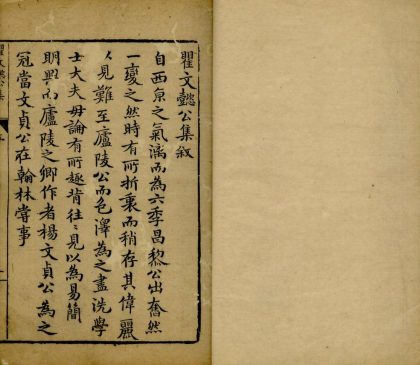 瞿文懿公集叙
自西京之氣漓而為六季昌黎公出奮然
一變之然時有所折衷而稍存其偉麗
人見難至廬陵公而色澤為之盡洗學
士大夫毋論有所趣背往〻見以為易簡
明興而廬陵之卿作者楊文貞公為之
冠當文貞公在翰林嘗事
瞿文懿公集